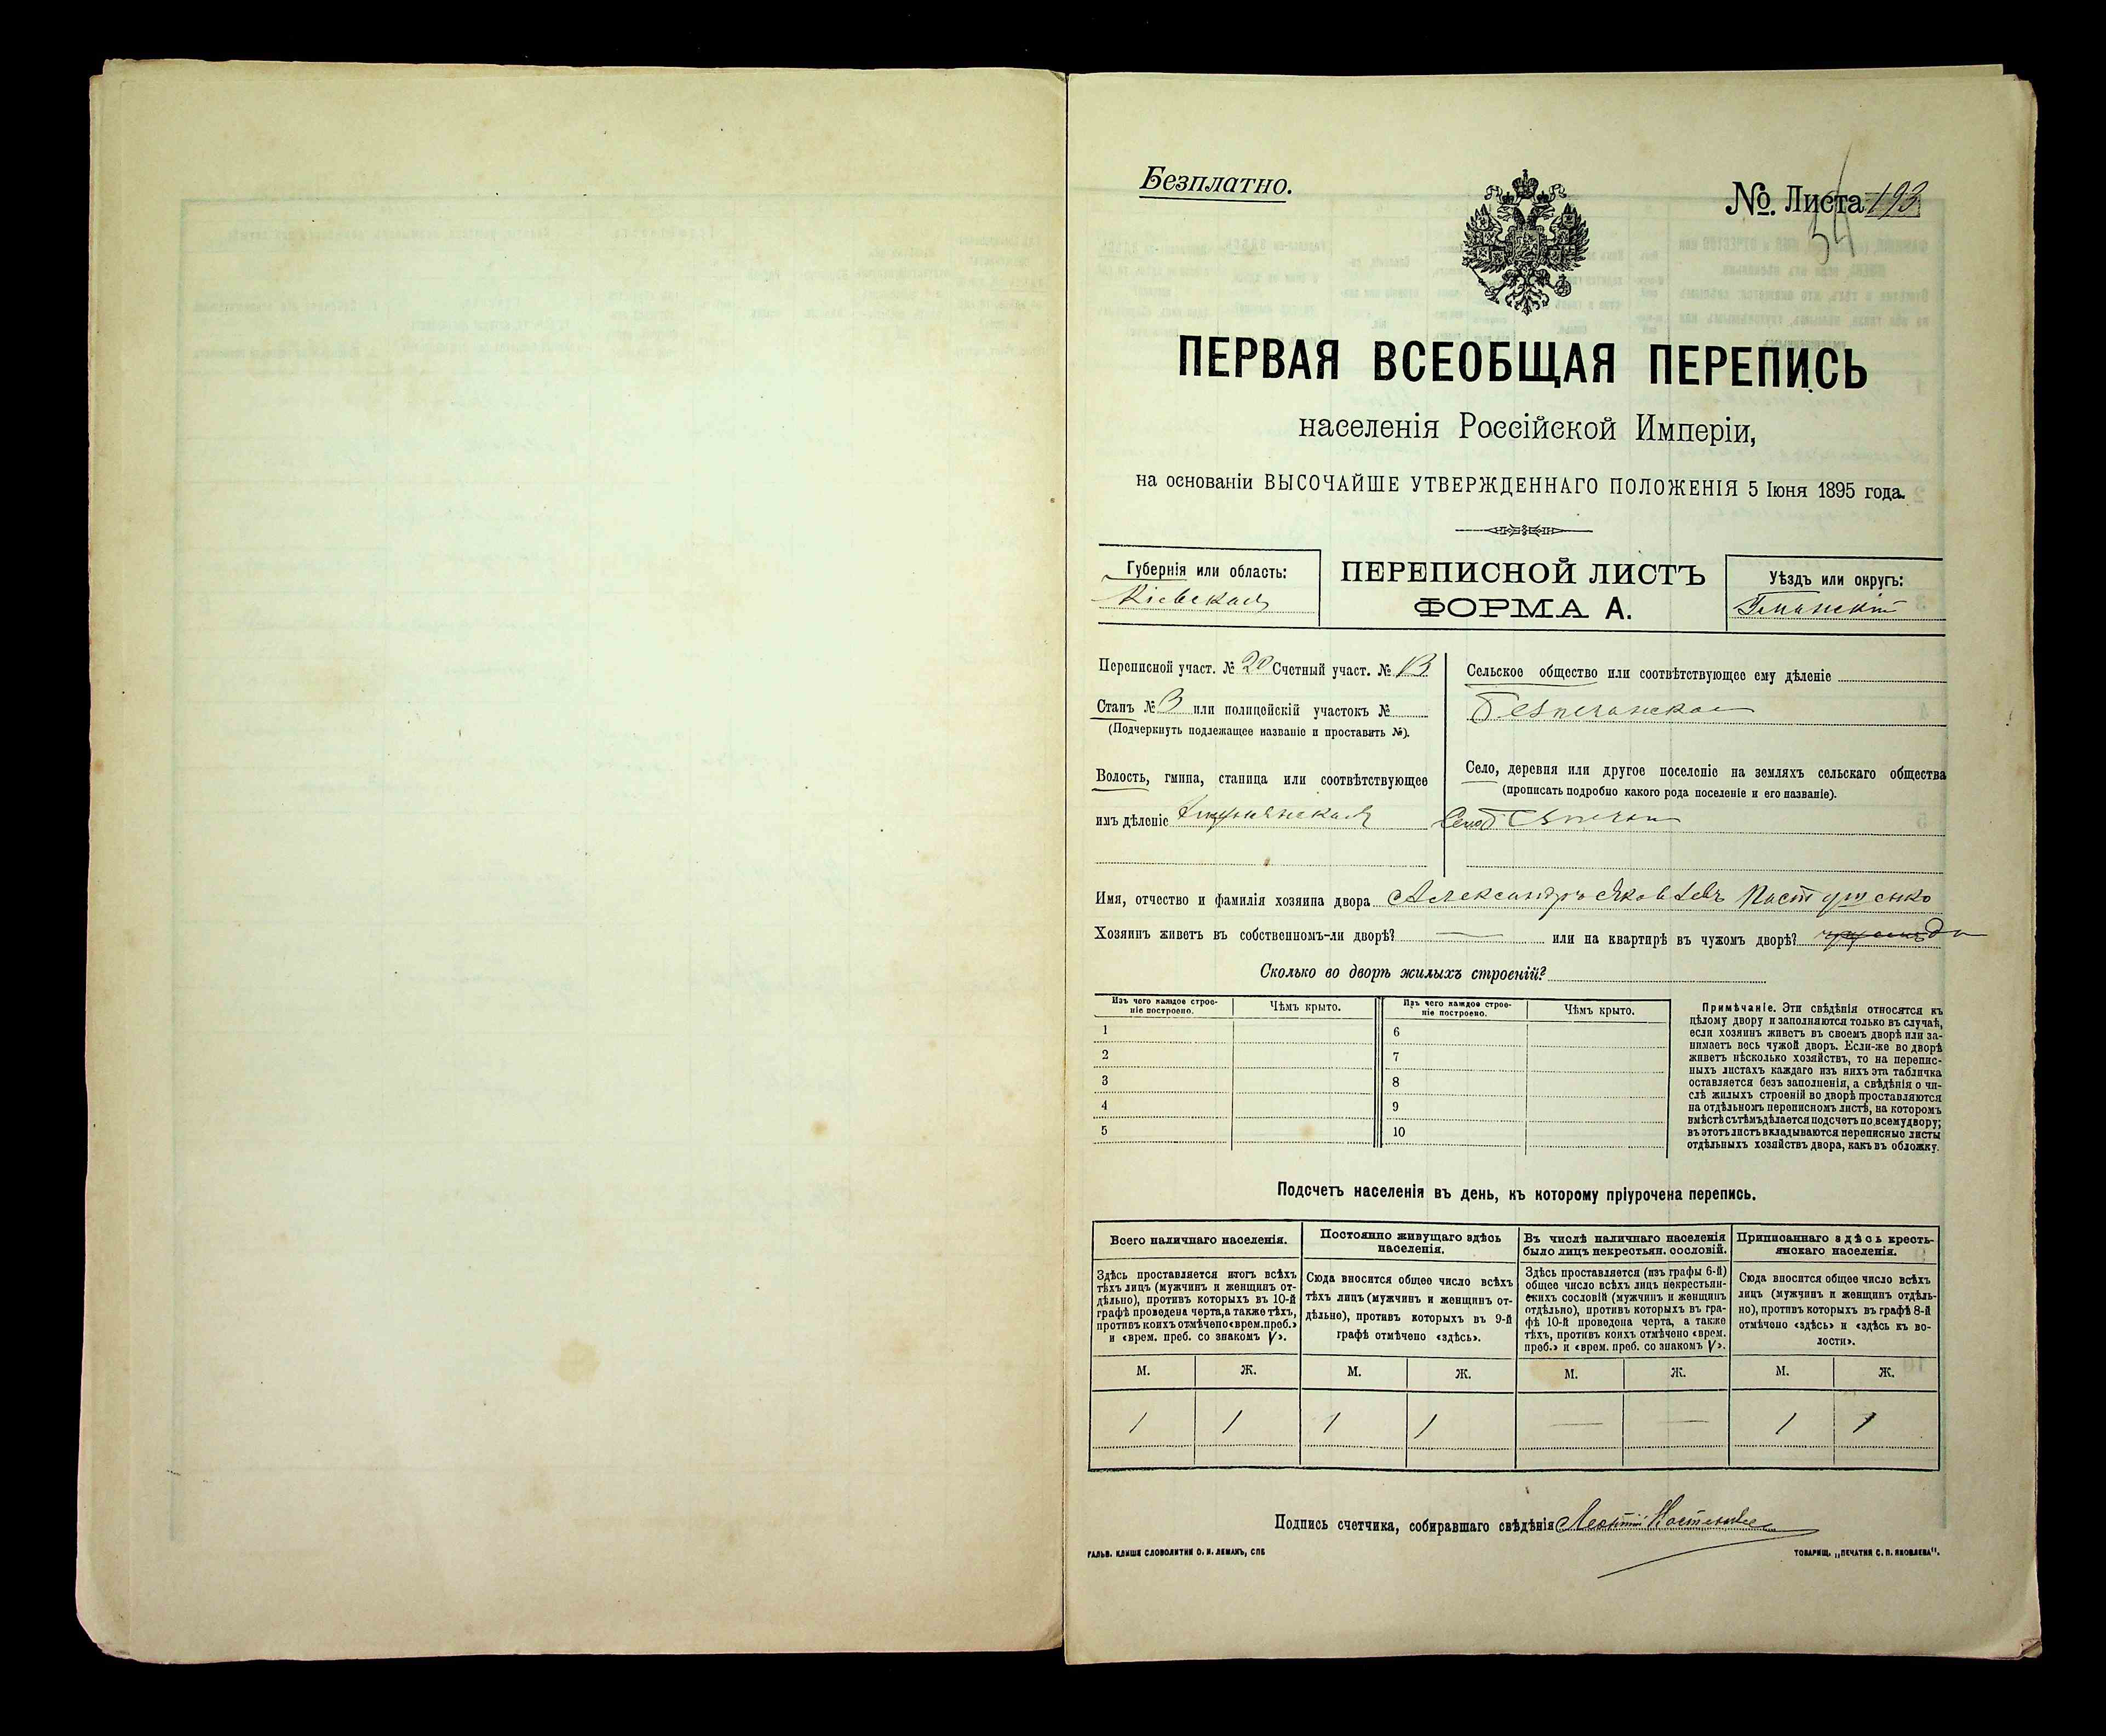 Безплатно.
№. Листа 193
54
ПЕРВАЯ ВСЕОБЩАЯ ПЕРЕПИСЬ
населенія Россійской Имперіи,
на основаніи ВЫСОЧАЙШЕ УТВЕРЖДЕННАГО ПОЛОЖЕНІЯ 5 Іюня 1895 года.
Губернія или область:
Кіевская
ПЕРЕПИСНОЙ ЛИСТЪ
ФОРМА А.
Уѣздъ или округъ:
Уманскій
Переписной участ. № 20 Счетный участ. № 13
Станъ № 3 или полицейскій участокъ №
(Подчеркнуть подлежащее названіе и проставить №).
Волость, гмина, станица или соотвѣтствующее
имъ дѣленіе
Сельское общество или соотвѣтствующее ему дѣленіе
Безпечанское
Село, деревня или другое поселеніе на земляхъ сельскаго общества
(прописать подробно какого рода поселеніе и его названіе).
Село
Имя, отчество и фамилія хозяина двора Александръ Яковлевъ Пастушенко
Хозяинъ живетъ въ собственномъ-ли дворѣ? — или на квартирѣ въ чужомъ дворѣ? да
Сколько во дворѣ жилыхъ строеній?
Изъ чего каждое строе-
ніе построено.
Чѣмъ крыто.
Изъ чего каждое строе-
ніе построено.
Чѣмъ крыто.
1 6
2 7
3 8
4 9
5 10
Примѣчаніе. Эти свѣдѣнія относятся къ
цѣлому двору и заполняются только въ случаѣ,
если хозяинъ живетъ въ своемъ дворѣ или за-
нимаетъ весь чужой дворъ. Если-же во дворѣ
живетъ нѣсколько хозяйствъ, то на перепис-
ныхъ листахъ каждаго изъ нихъ эта табличка
оставляется безъ заполненія, а свѣдѣнія о чи-
слѣ жилыхъ строеній во дворѣ проставляются
на отдѣльномъ переписномъ листѣ, на которомъ
вмѣстѣ съ тѣмъ дѣлается подсчетъ по всему двору;
въ этотъ листъ вкладываются переписные листы
отдѣльныхъ хозяйствъ двора, какъ въ обложку.
Подсчетъ населенія въ день, къ которому пріурочена перепись.
Всего наличнаго населенія.
Здѣсь проставляется итогъ всѣхъ
тѣхъ лицъ (мужчинъ и женщинъ от-
дѣльно), противъ которыхъ въ 10-й
графѣ проведена черта, а также тѣхъ,
противъ коихъ отмѣчено «врем. преб.»
и «врем. преб. со знакомъ V».
Постоянно живущаго здѣсь
населенія.
Сюда вносится общее число всѣхъ
тѣхъ лицъ (мужчинъ и женщинъ от-
дѣльно), противъ которыхъ въ 9-й
графѣ отмѣчено «здѣсь».
Въ числѣ наличнаго населенія
было лицъ некрестьян. сословій.
Здѣсь проставляется (изъ графы 6-й)
общее число всѣхъ лицъ некрестьян-
скихъ сословій (мужчинъ и женщинъ
отдѣльно), противъ которыхъ въ гра-
фѣ 10-й проведена черта, а также
тѣхъ, противъ коихъ отмѣчено «врем.
преб.» и «врем. преб. со знакомъ V».
Приписаннаго здѣсь кресть-
янскаго населенія.
Сюда вносится общее число всѣхъ
лицъ (мужчинъ и женщинъ отдѣль-
но), противъ которыхъ въ графѣ 8-й
отмѣчено «здѣсь» и «здѣсь къ во-
лости».
М. Ж. М. Ж. М. Ж. М. Ж.
1 1 1 1 — — 1 1
Подпись счетчика, собиравшаго свѣдѣнія Леонтій
ГАЛЬВ. КЛИШЕ СЛОВОЛИТНИ О. И. ЛЕМАНЪ, СПБ
ТОВАРИЩ. „ПЕЧАТНЯ С. П. ЯКОВЛЕВА".